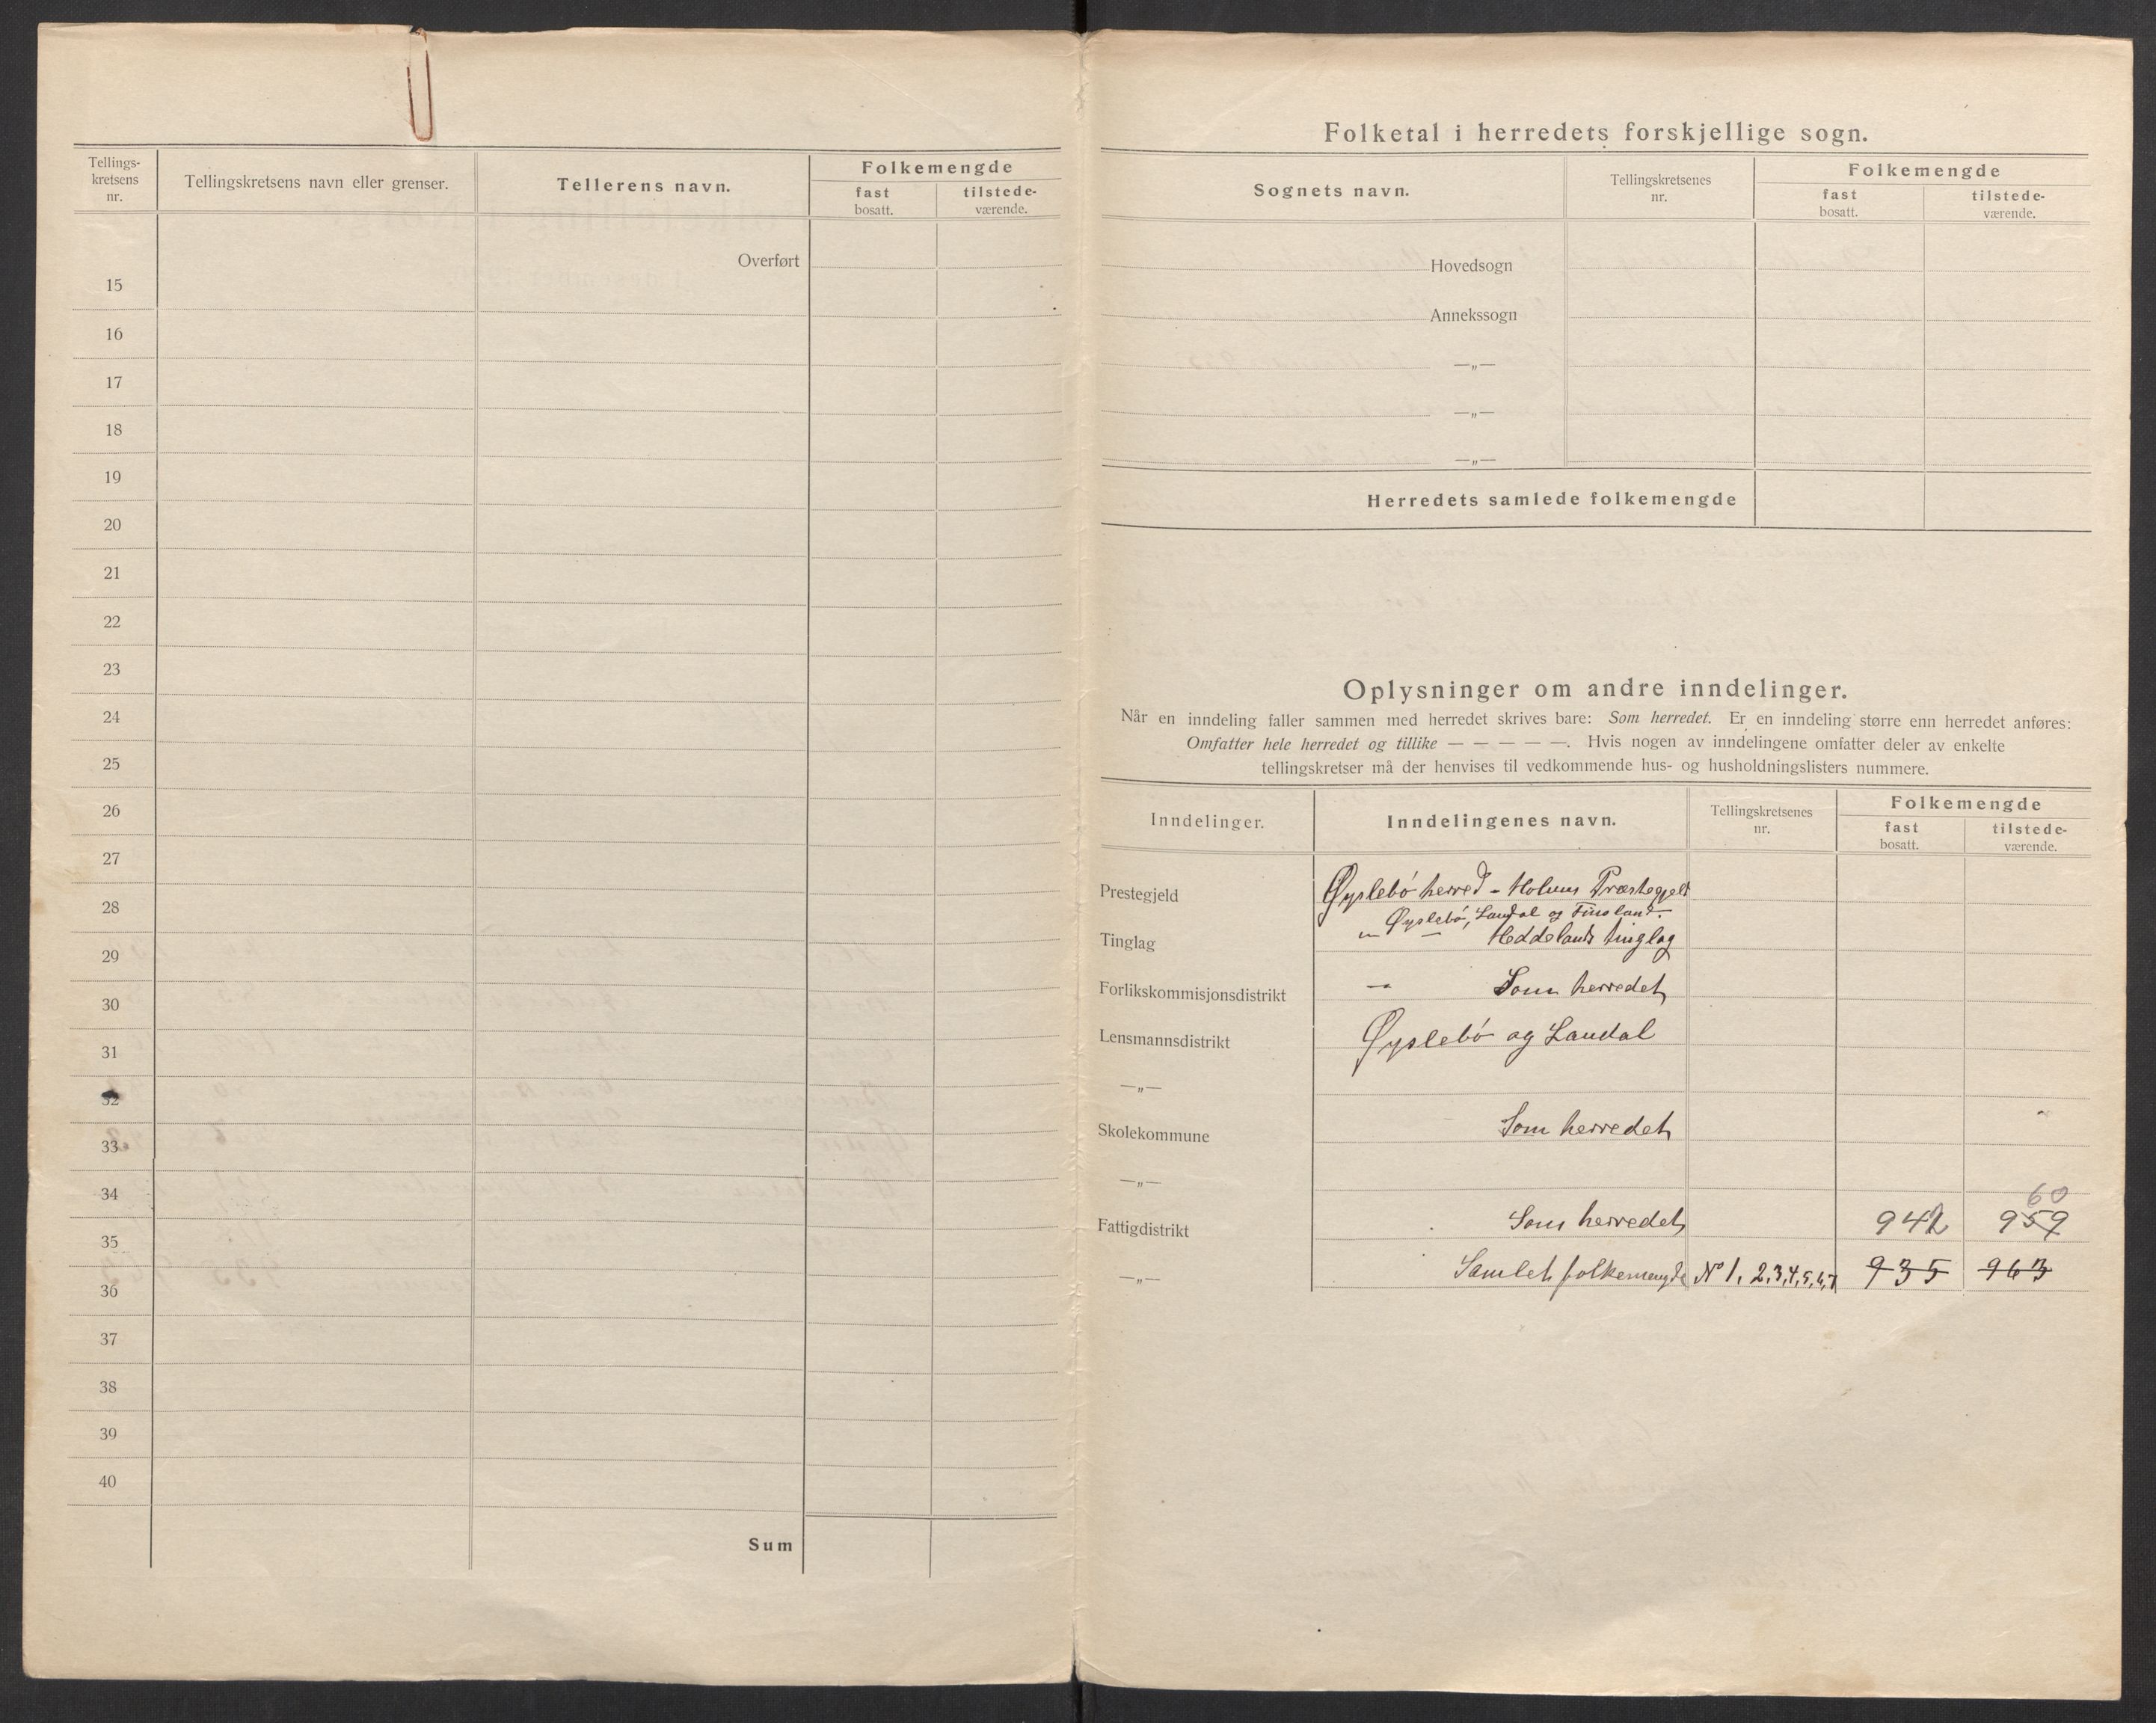 Tellings-
kretsens
nr.
Tellingskretsens navn eller grenser.
Tellerens navn.
Folkemengde
fast
bosatt.
tilstede-
værende.
Overført
15
16
17
18
19
20
21
22
23
24
25
26
27
28
29
30
31
32
33
34
35
36
37
38
39
40
Sum
Folketal i herredets forskjellige sogn.
Sognets navn.
Tellingskretsenes
nr.
Folkemengde
fast
bosatt.
tilstede-
værende.
Hovedsogn
Annekssogn
—„—
—„—
—„—
Herredets samlede folkemengde
Oplysninger om andre inndelinger.
Når en inndeling faller sammen med herredet skrives bare: Som herredet. Er en inndeling større enn herredet anføres:
Omfatter hele herredet og tillike — — — — —. Hvis nogen av inndelingene omfatter deler av enkelte
tellingskretser må der henvises til vedkommende hus- og husholdningslisters nummere.
Inndelinger.
Inndelingenes navn.
Tellingskretsenes
nr.
Folkemengde
fast
bosatt.
tilstede-
værende.
Prestegjeld Øyslebö herred - Holums Præstegjeld
Øyslebö, Laudal og Finsland.
Tinglag — Heddelands tinglag
Forlikskommisjonsdistrikt — Som herredet
Lensmannsdistrikt Øyslebö og Laudal
—„—
Skolekommune Som herredet
—„—
60
Fattigdistrikt Som herredet 942 959
—„— Samlet folkemengde No 1, 2,3,4,5,6,7 935 963